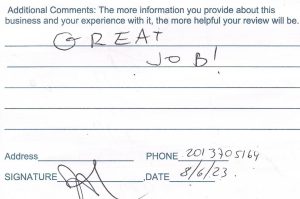 Additional Comments: The more information you provide about this
business and your experience with it, the more helpful your review will be.
GREAT
JOB!
Address
PHONE 2013705164
SIGNATURE DATE 8/6/23